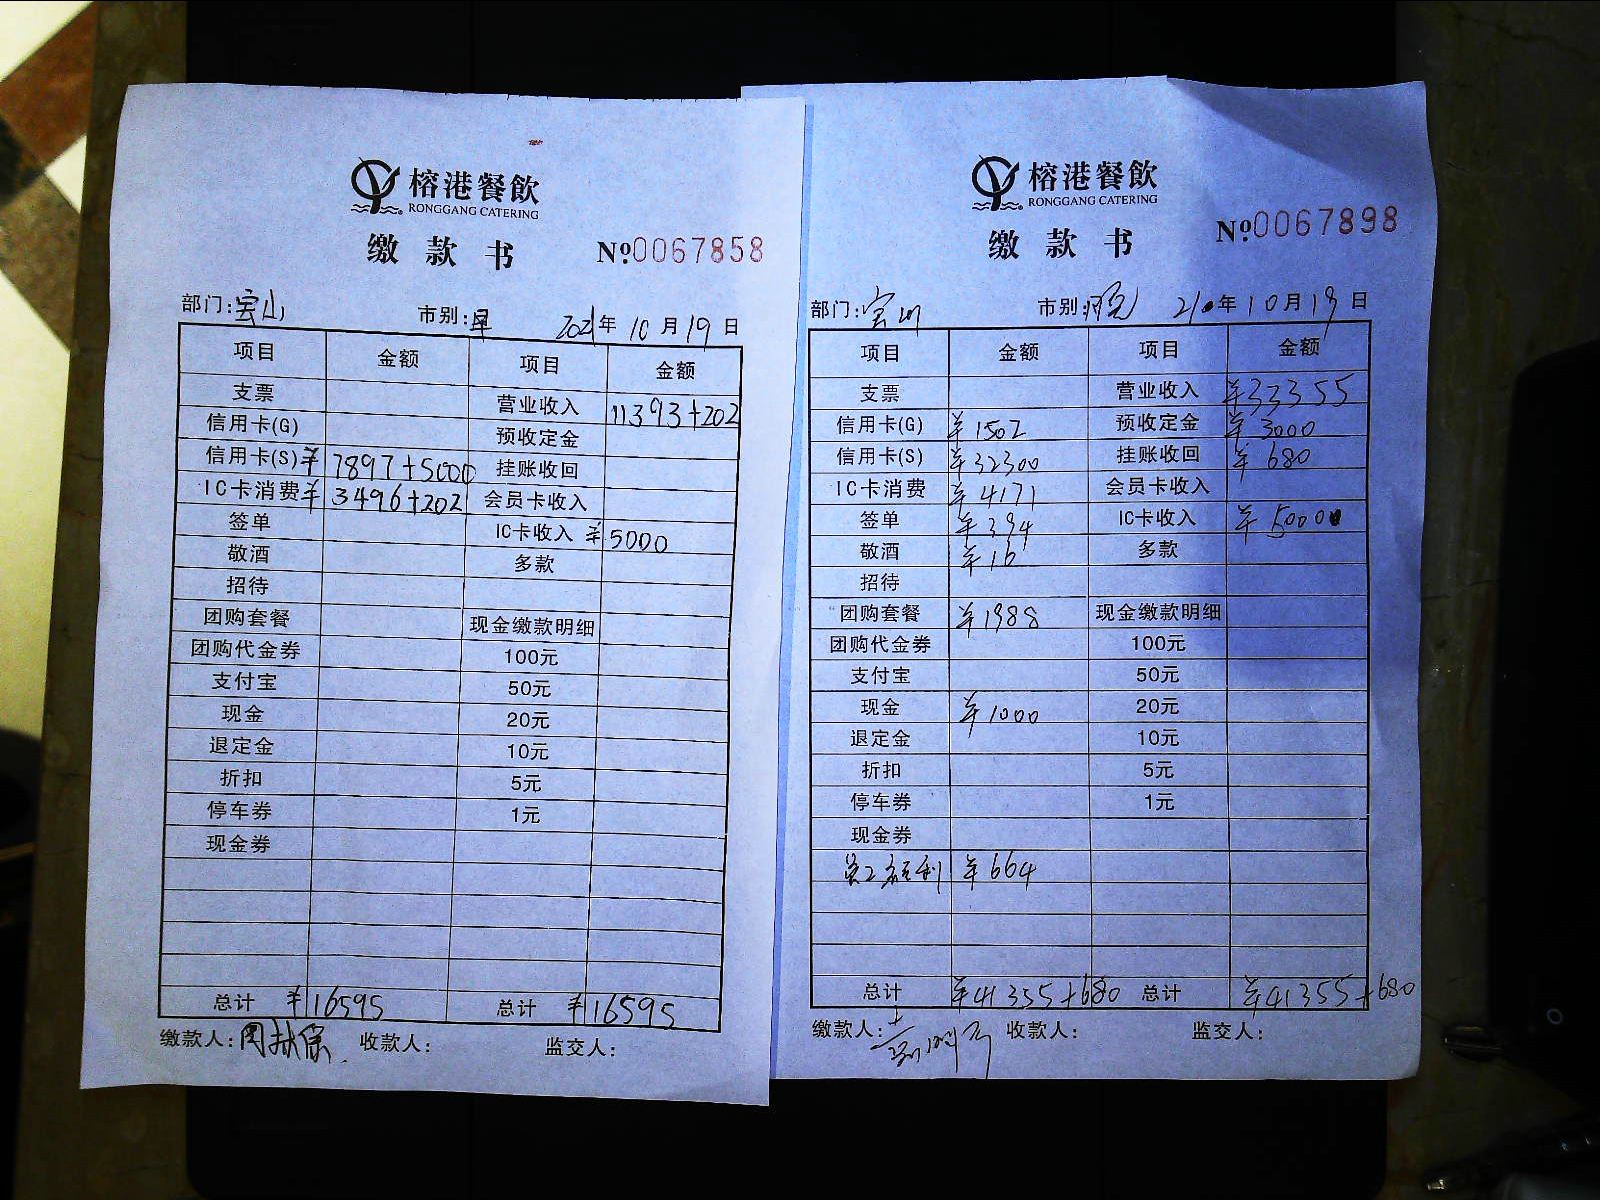 榕港餐飲
RONGGANG CATERING
缴款书 №0067858
部门:宝山 市别:早 2021年10月19日
项目 金额 项目 金额
支票 营业收入 11393+202
信用卡(G) 预收定金
信用卡(S) ¥7897+5000 挂账收回
IC卡消费 ¥3496+202 会员卡收入
签单 IC卡收入 ¥5000
敬酒 多款
招待
团购套餐 现金缴款明细
团购代金券 100元
支付宝 50元
现金 20元
退定金 10元
折扣 5元
停车券 1元
现金券
总计 ¥16595 总计 ¥16595
缴款人: 收款人: 监交人:
榕港餐飲
RONGGANG CATERING
缴款书 №0067898
部门:宝山 市别:晚 21年10月19日
项目 金额 项目 金额
支票 营业收入 ¥33355
信用卡(G) ¥1502 预收定金 ¥3000
信用卡(S) ¥32300 挂账收回 ¥680
IC卡消费 ¥4171 会员卡收入
签单 ¥394 IC卡收入 ¥5000
敬酒 ¥16 多款
招待
团购套餐 ¥1988 现金缴款明细
团购代金券 100元
支付宝 50元
现金 ¥1000 20元
退定金 10元
折扣 5元
停车券 1元
现金券
员工福利 ¥664
总计 ¥41355+680 总计 ¥41355+680
缴款人: 收款人: 监交人: